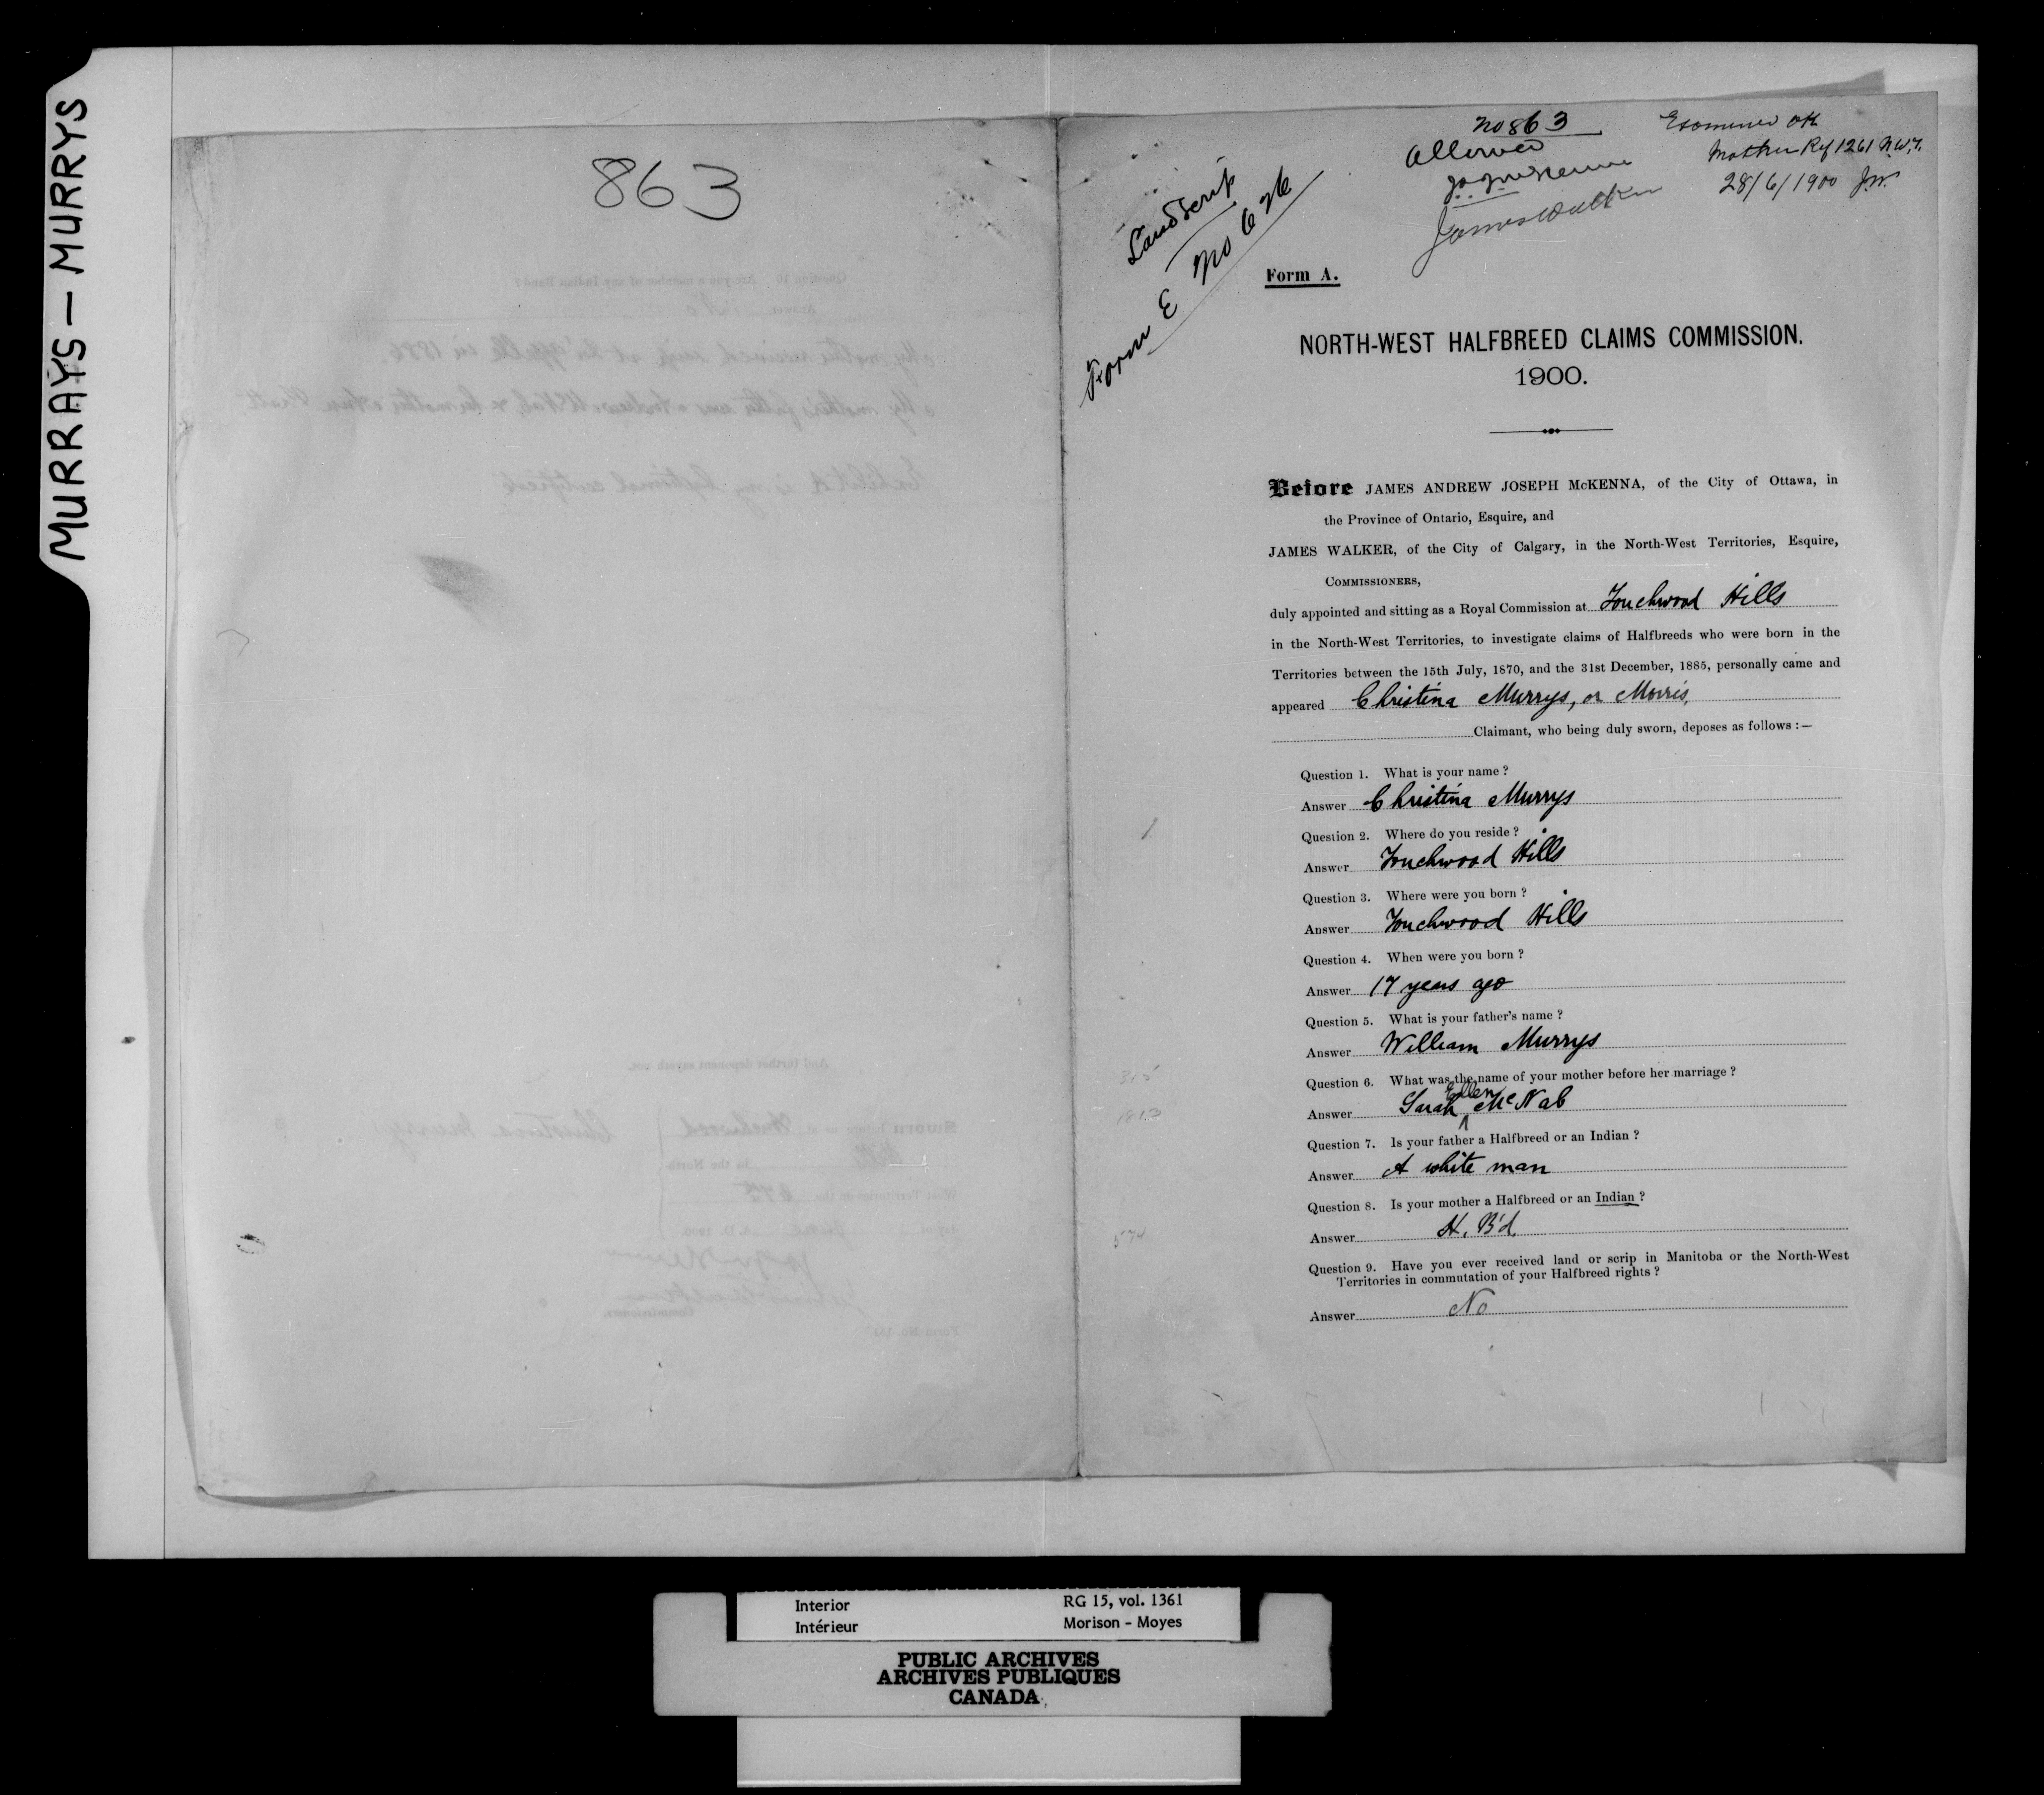 MURRAYS — MURRYS
863
No 863
Allowed
J.A.J. McKenna
James Walker
Examined OK
Mother Ref 1261 N.W.T.
28/6/1900 J.W.
Land Scrip
Form E No 626
Form A.
NORTH-WEST HALFBREED CLAIMS COMMISSION.
1900.
Before JAMES ANDREW JOSEPH McKENNA, of the City of Ottawa, in
the Province of Ontario, Esquire, and
JAMES WALKER, of the City of Calgary, in the North-West Territories, Esquire,
COMMISSIONERS,
duly appointed and sitting as a Royal Commission at Touchwood Hills
in the North-West Territories, to investigate claims of Halfbreeds who were born in the
Territories between the 15th July, 1870, and the 31st December, 1885, personally came and
appeared Christina Murrys, or Morris,
Claimant, who being duly sworn, deposes as follows :—
Question 1. What is your name ?
Answer Christina Murrys
Question 2. Where do you reside ?
Answer Touchwood Hills
Question 3. Where were you born ?
Answer Touchwood Hills
Question 4. When were you born ?
Answer 17 years ago
Question 5. What is your father's name ?
Answer William Murrys
Question 6. What was the name of your mother before her marriage ?
Answer Sarah Ellen McNab
Question 7. Is your father a Halfbreed or an Indian ?
Answer A white man
Question 8. Is your mother a Halfbreed or an Indian ?
Answer H. B'd.
Question 9. Have you ever received land or scrip in Manitoba or the North-West
Territories in commutation of your Halfbreed rights ?
Answer No
Interior
Intérieur
RG 15, vol. 1361
Morison - Moyes
PUBLIC ARCHIVES
ARCHIVES PUBLIQUES
CANADA